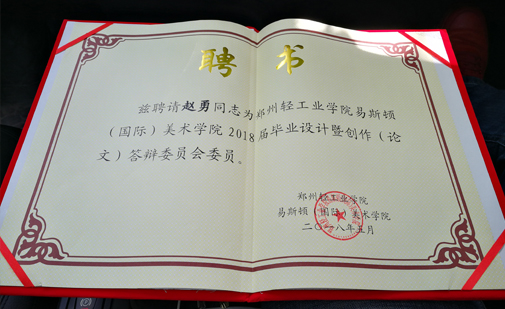 聘书
兹聘请赵勇同志为郑州轻工业学院易斯顿
（国际）美术学院2018届毕业设计暨创作（论
文）答辩委员会委员。
郑州轻工业学院
易斯顿（国际）美术学院
二〇一八年五月